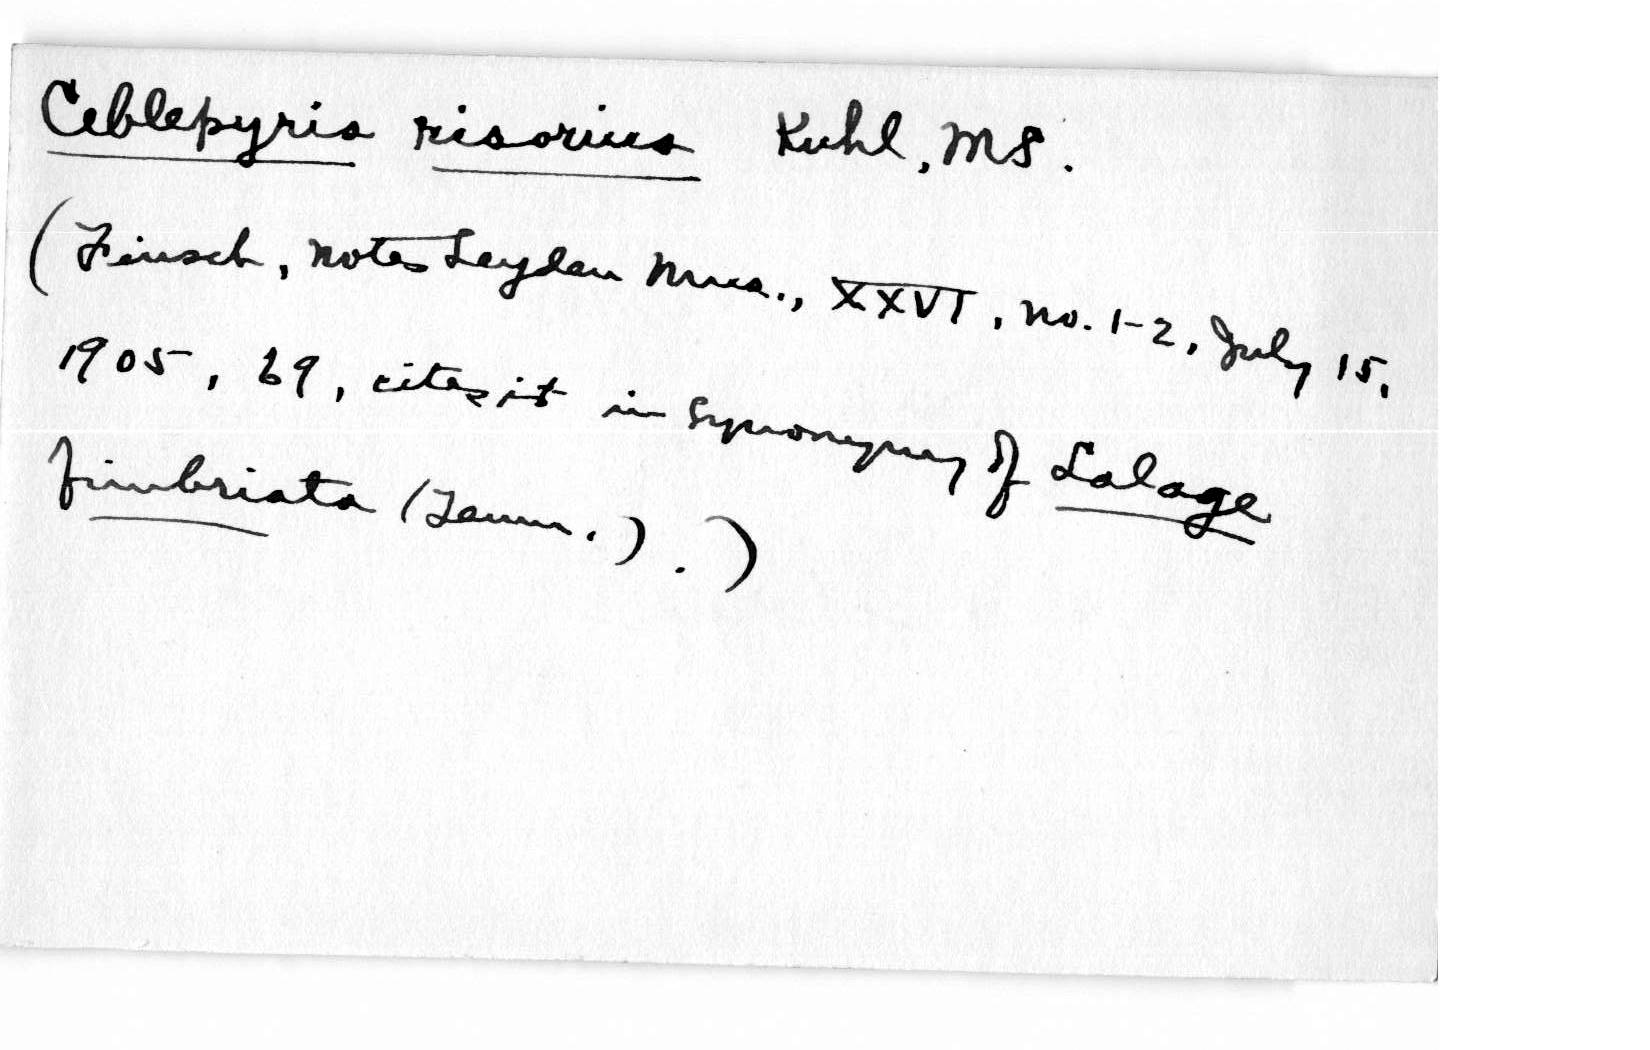 Ceblepyris risorius Kuhl, MS.
(Finsch, Notes Leyden Mus., XXVI, no. 1-2, July 15,
1905, 69, cites it in synonymy of Lalage
fimbriata (Temm.).)